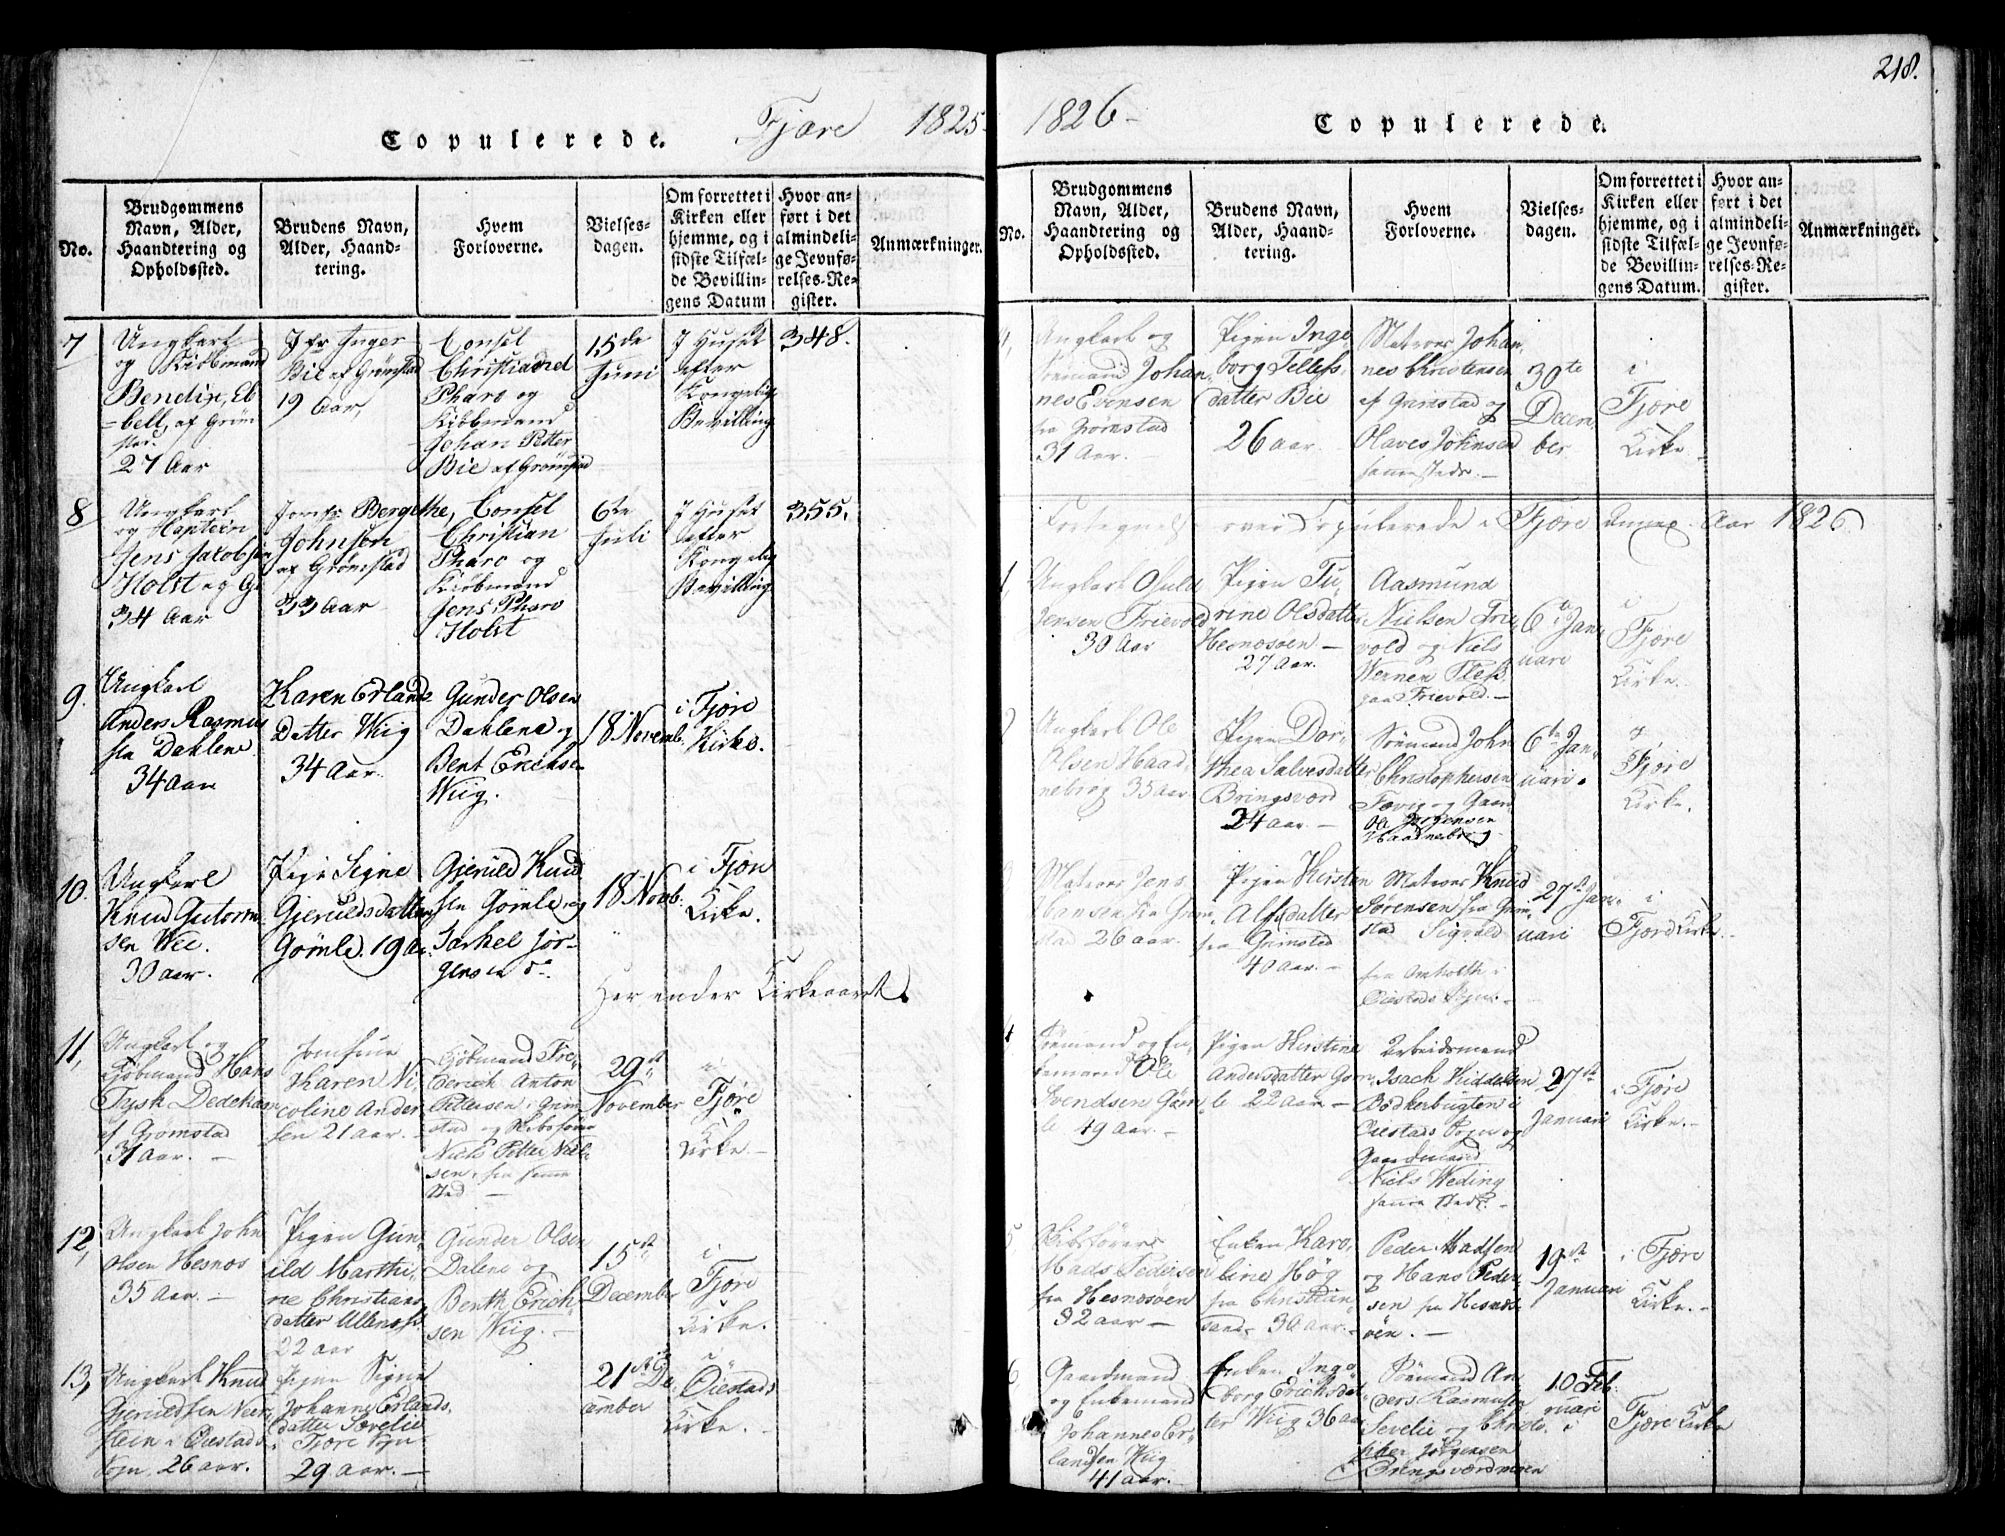 Copulerede. Fjære 1825
No.
Brudgommens Navn, Alder, Haandtering og Opholdssted.
Brudens Navn, Alder, Haandtering.
Hvem Forloverne.
Vielses-dagen.
Om forrettet i Kirken eller hjemme, og i sidste Tilfælde Bevillingens Datum
Hvor anført i det almindelige Jevnførelses-Register.
Anmærkninger.
7
Ungkarl
og Kiøbmand
Bendix Eb
=bell, af Grøm
stad.
27 Aar
Jfr Inger
Bie af Grømstad
19 Aar,
Consel
Christiand
Pharo og
Kiøbmand
Johan Petter
Bie af Grømstad
15de
Juni
I Huset
efter
Kongelig
Bevilling
348.
8
Ungkarl
og Captein
Jens Jacobsen
Holst
34 Aar
Jomfr Bergethe
Johnsen
af Grømstad
33 Aar
Consel
Christian
Pharo og
Kiøbmand
Jens Pharo
Holst
6te
Juli
I Huset
efter
Kongelig
Bevilling
355.
9.
Ungkarl
Anders Rasmus
sen Dahlene
34 Aar
Karen Erlands
Datter Wiig
34 Aar.
Gunder Olsen
Dahlene og
Bent Erichsen
Wiig.
18 Novemb.
i Fjøre
Kirke.
10.
Ungkarl
Knud Gutorm
sen Vee.
30 aar.
Pige Signe
Gjeruldsdatter
Gømle. 19 Aar
Gjeruld Knud
sen Gømle og
Tarkel Jør-
gensen
18 Novb:
i Fjøre
Kirke.
Her ender Kirkeaaret.
11,
Ungkarl og
Kjøbmand Hans
Tysk Dedekam
af Grømstad
31 Aar. –
Jomfrue
Karen Ni
coline Ander
sen 21 aar.
Kjøbmand Fre-
derich Anton
Pettersen i Grim
stad og
Niels Petter Niel-
sen, fra samme
Sted –
29de
November
Fjøre
Kirke. –
12,
Ungkarl John
Olsen Hesnes
35 Aar. –
Pigen Gun-
ild Marthi-
ne Christians
datter
22 aar
Gunder Olsen
Dalene og
Benth Erich-
sen Wiig. –
15de
December
i
Fjøre
Kirke.
13,
Ungkarl Knud
Gjeruldsen
i Øiestads
Sogn, 26 aar.
Pigen Signe
Johanne Erlands-
datter Sevelie
i Fjøre Sogn
29 aar. –
21de De-
cember
i
Øiestads
Kirke. –
218.
1826 – Copulerede.
No.
Brudgommens Navn, Alder, Haandtering og Opholdssted.
Brudens Navn, Alder, Haandtering.
Hvem Forloverne.
Vielses-dagen.
Om forrettet i Kirken eller hjemme, og i sidste Tilfælde Bevillingens Datum.
Hvor anført i det almindelige Jevnførelses-Register.
Anmærkninger.
Ungkarl og
Sømand Johan-
nes Evensen
fra Grømstad
31 Aar.
Pigen Inge-
borg Tellefs-
datter Bie
26 aar.
Matros Johan-
nes Christensen
af Grimstad og
Olaves Johnsen
sammesteds. –
30te
Decem
ber
i
Fjøre
Kirke
Fortegnelse over Copulerede i Fjære Annex Aar 1826
Ungkarl
Jensen Frievold
30 Aar
Pigen Tu-
rine Olsdatter
Hesnesøen –
27 Aar.
Aasmund
Nielsen Frie-
vold og Niels
Werner
Frievold. –
6te Jan-
uari
i
Fjøre
Kirke.
Ungkarl Ole
Olsen Haad-
nebrog 35 aar
Pigen Dor-
thea Salvesdatter
Bringsværd
24 aar. –
Sømand John
Christophersen
Fævig og
Ole Jørgensen
Haadnebrog
6te Jan-
uari.
Fjøre
Kirke.
Matros Jens
Hansen fra Grim
stad 26 aar.
Pigen Kirsten
Alfsdatter
fra Grimsted
40 Aar. –
Matros Knud
Sørensen fra Grim
stad Sigvald
fra Omholth i
Øiestads Sogn. –
27de Jan-
uari
i
Fjøre Kirke –
4
Sømand og En-
kemand Ole
Svendsen Gøm-
le 49 Aar. –
Pigen Kirstine
Andersdatter Gøm-
le 22 aar –
Arbeidsmand
Isach Kiddelsen
Bødkerbugten i
Øiestads Sogn og
Gaardmand
Niels Weding
samme Sted. –
27de
Januari
i Fjøre
Kirke. –
5
Mads Pedersen
fra Hesnesøen
32 aar –
Enken Karo-
line Høg
fra Christian-
sand 30 aar. –
Peder Madsen
og Hans Peder-
sen fra Hesnes-
øen. –
19de
Januari
i Fjøre
Kirke. –
6
Gaardmand
og Enkemand
Johannes Er-
landsen Wiig
41 aar. –
Enken Inge
borg Erichsdat-
ter Wiig 36 aar
Sømand An-
ders Rasmusen
Sevelie og Christo-
pher Jørgensen
Bringsværdmoen
10 Feb-
ruari
i
Fjøre Kirke